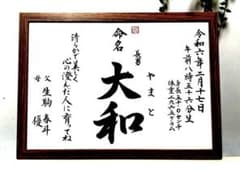 令和六年二月十七日
午前八時五十六分生
身長五十センチ
命名
長男
やまと
大和
清らかで美しく
心の澄んだ人に育てね
父 生駒 春斗
母 優